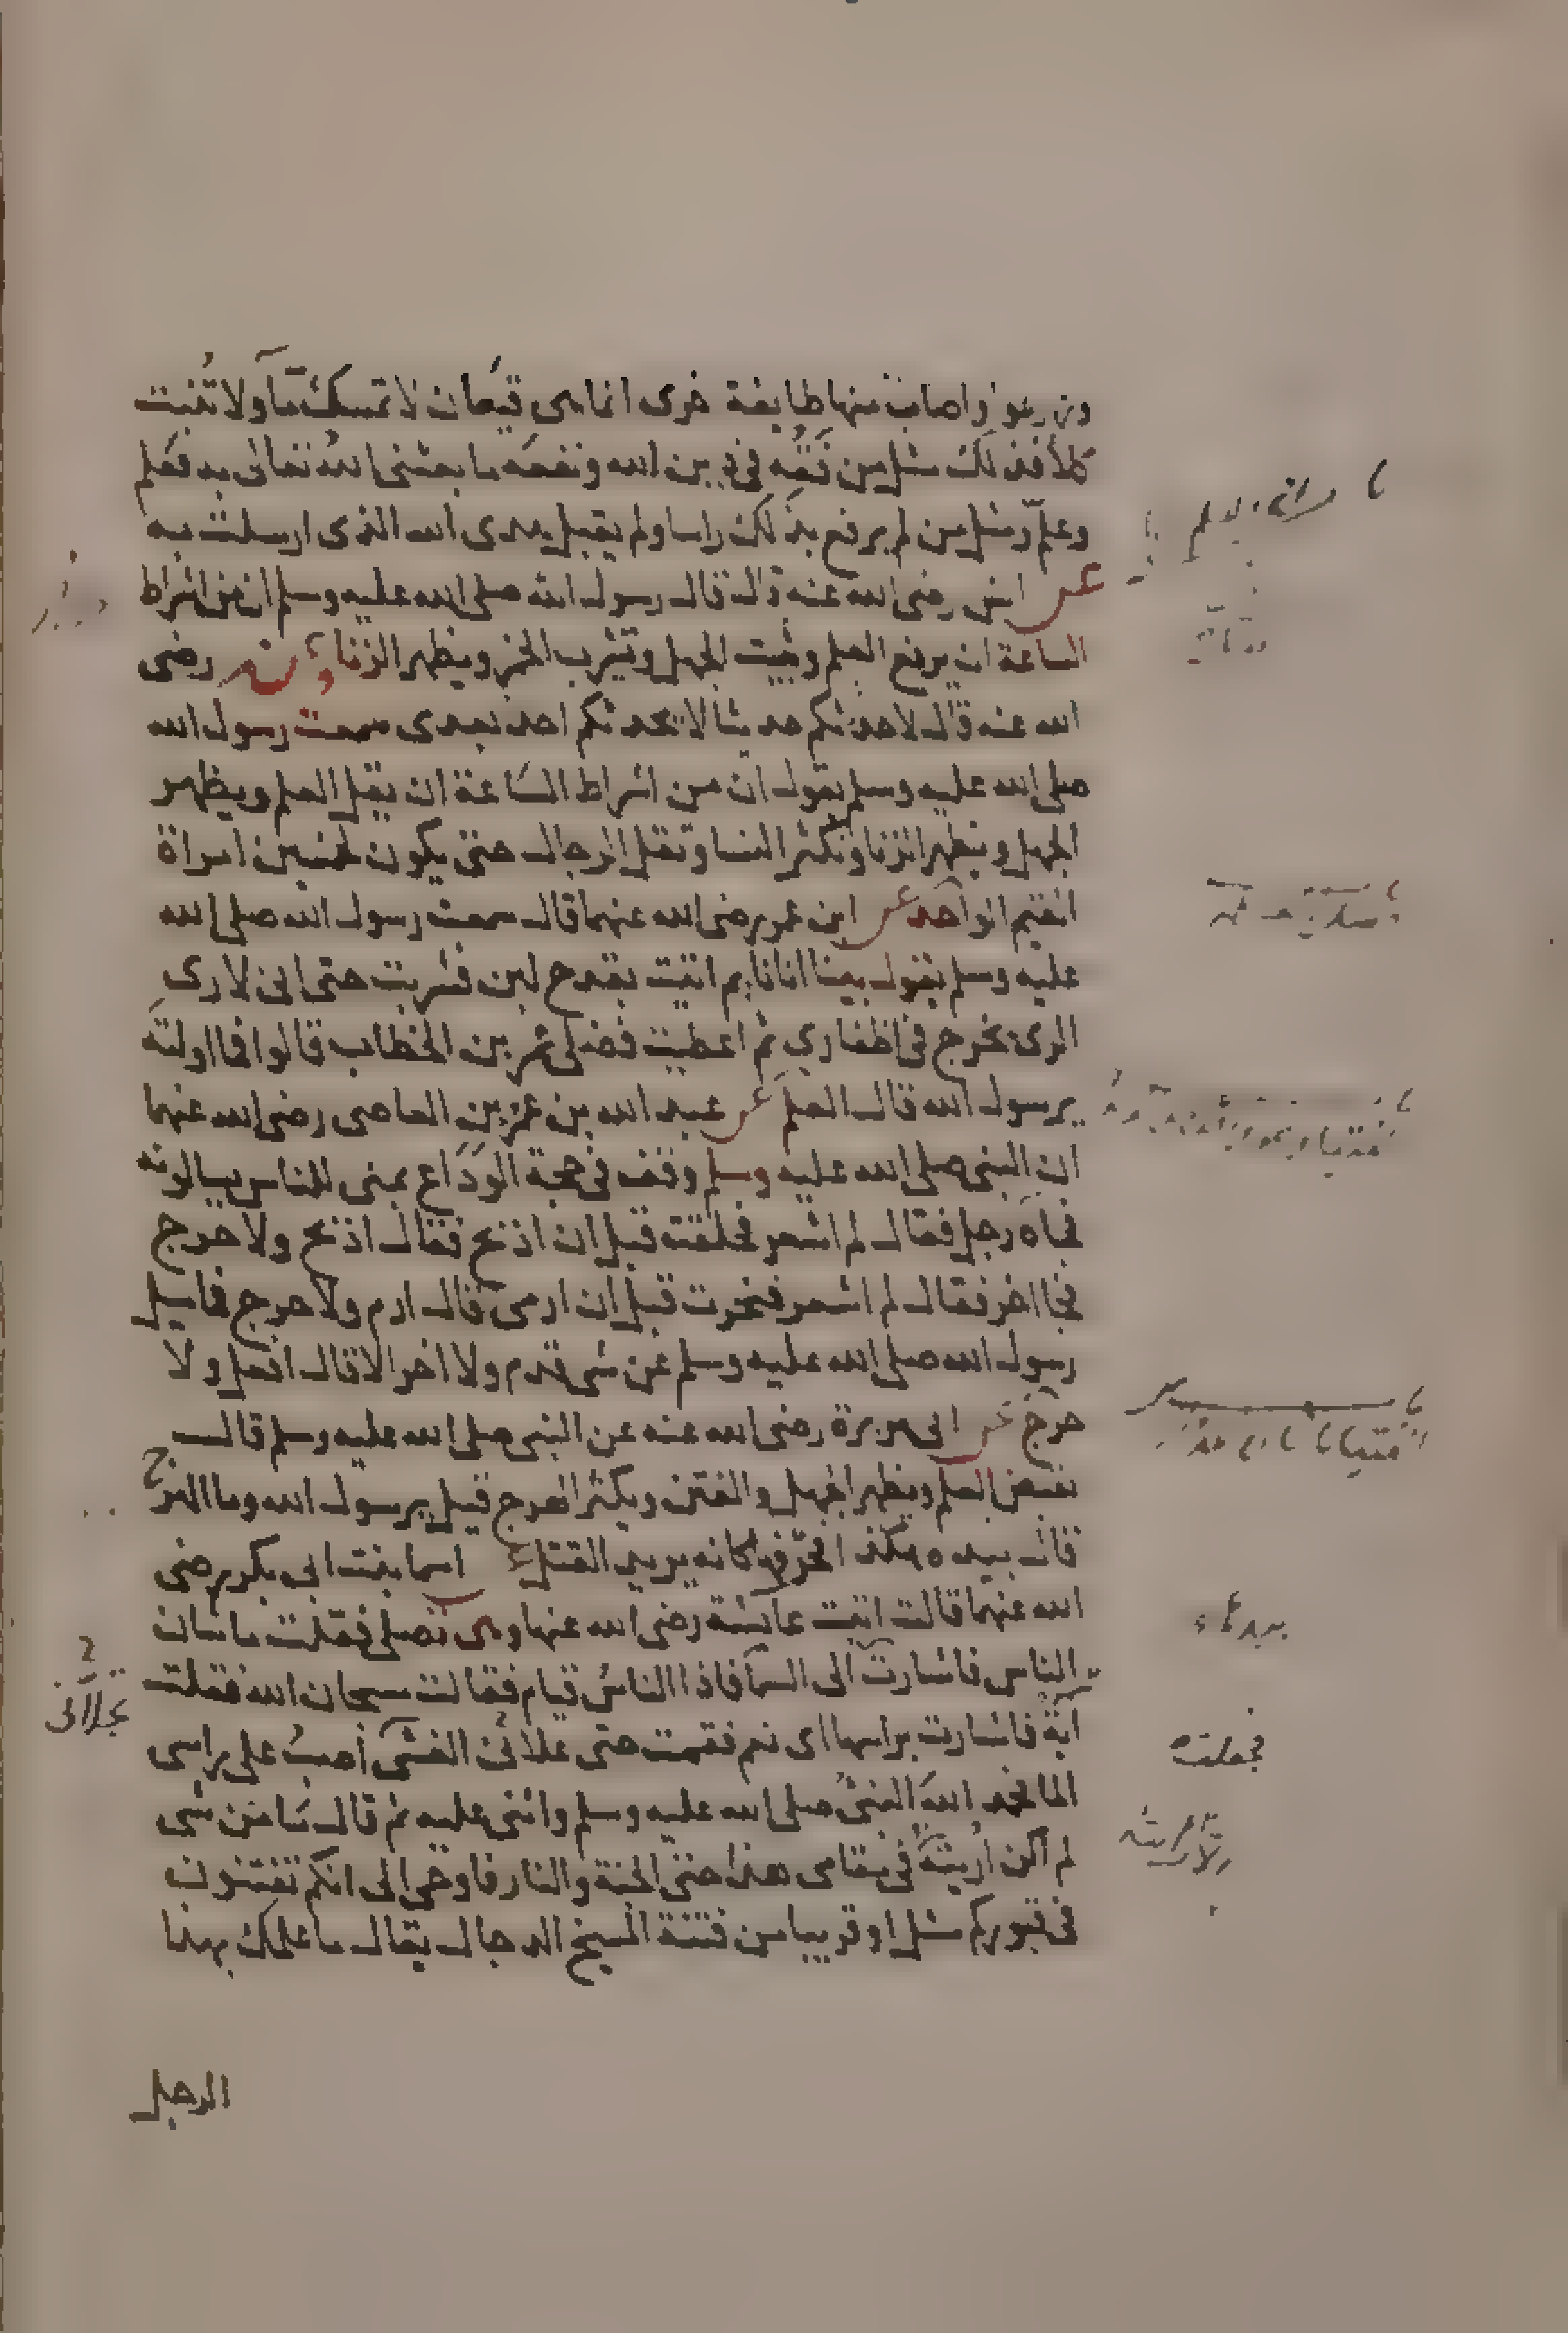 وزرعوا واصاب منها طايفة اخرى انما هى قيعان لا تمسك ماء ولا تنبت
كلأ فذلك مثل من فقه فى دين الله ونفعه ما بعثنى الله تعالى به فعلم
وعلم ومثل من لم يرفع بذلك راسا ولم يقبل هدى الله الذى ارسلت به
عن انس رضى الله عنه قال قال رسول الله صلى الله عليه وسلم ان من اشراط
الساعة ان يرفع العلم ويثبت الجهل وتشرب الخمر ويظهر الزنا وعنه رضى
الله عنه قال لاحدثنكم حديثا لا يحدثكم احد بعدى سمعت رسول الله
صلى الله عليه وسلم يقول ان من اشراط الساعة ان يقل العلم ويظهر
الجهل ويظهر الزنا وتكثر النسا وتقل الرجال حتى يكون لخمسين امراة
القيم الواحد عن ابن عمر رضى الله عنهما قال سمعت رسول الله صلى الله
عليه وسلم يقول بينا انا نايم اتيت بقدح لبن فشربت حتى انى لارى
الرى يخرج فى اظفاري ثم اعطيت فضلى عمر بن الخطاب قالوا فما اولته
يرسول الله قال العلم عن عبد الله بن عمرو بن العاصى رضى الله عنهما
ان النبى صلى الله عليه وسلم وقف فى حجة الوداع بمنى للناس يسالونه
فجاه رجل فقال لم اشعر فحلقت قبل ان اذبح فقال اذبح ولا حرج
فجا اخر فقال لم اشعر فنحرت قبل ان ارمى قال ارم ولا حرج فما سيل
رسول الله صلى الله عليه وسلم عن شى قدم ولا اخر الا قال افعل ولا
حرج عن ابى هريرة رضى الله عنه عن النبى صلى الله عليه وسلم قال
يقبض العلم ويظهر الجهل والفتن ويكثر الهرج قيل يرسول الله وما الهرج
قال بيده هكذا فحرفها كانه يريد القتل عن اسما بنت ابى بكر رضى
الله عنهما قالت اتيت عايشة رضى الله عنها وهى تصلى فقلت ما شان
الناس فاشارت الى السما فاذا الناس قيام فقالت سبحان الله فقلت
اية فاشارت براسها اى نعم فقمت حتى علانى الغشى أصب على راسى
الما فحمد الله النبى صلى الله عليه وسلم واثنى عليه ثم قال ما من شى
لم اكن اريته فى مقامى هذا حتى الجنة والنار فاوحى الى انكم تفتنون
فى قبوركم مثل او قريبا من فتنة المسيح الدجال يقال ما علمك بهذا
تجلانى
فجعلت
الرجل